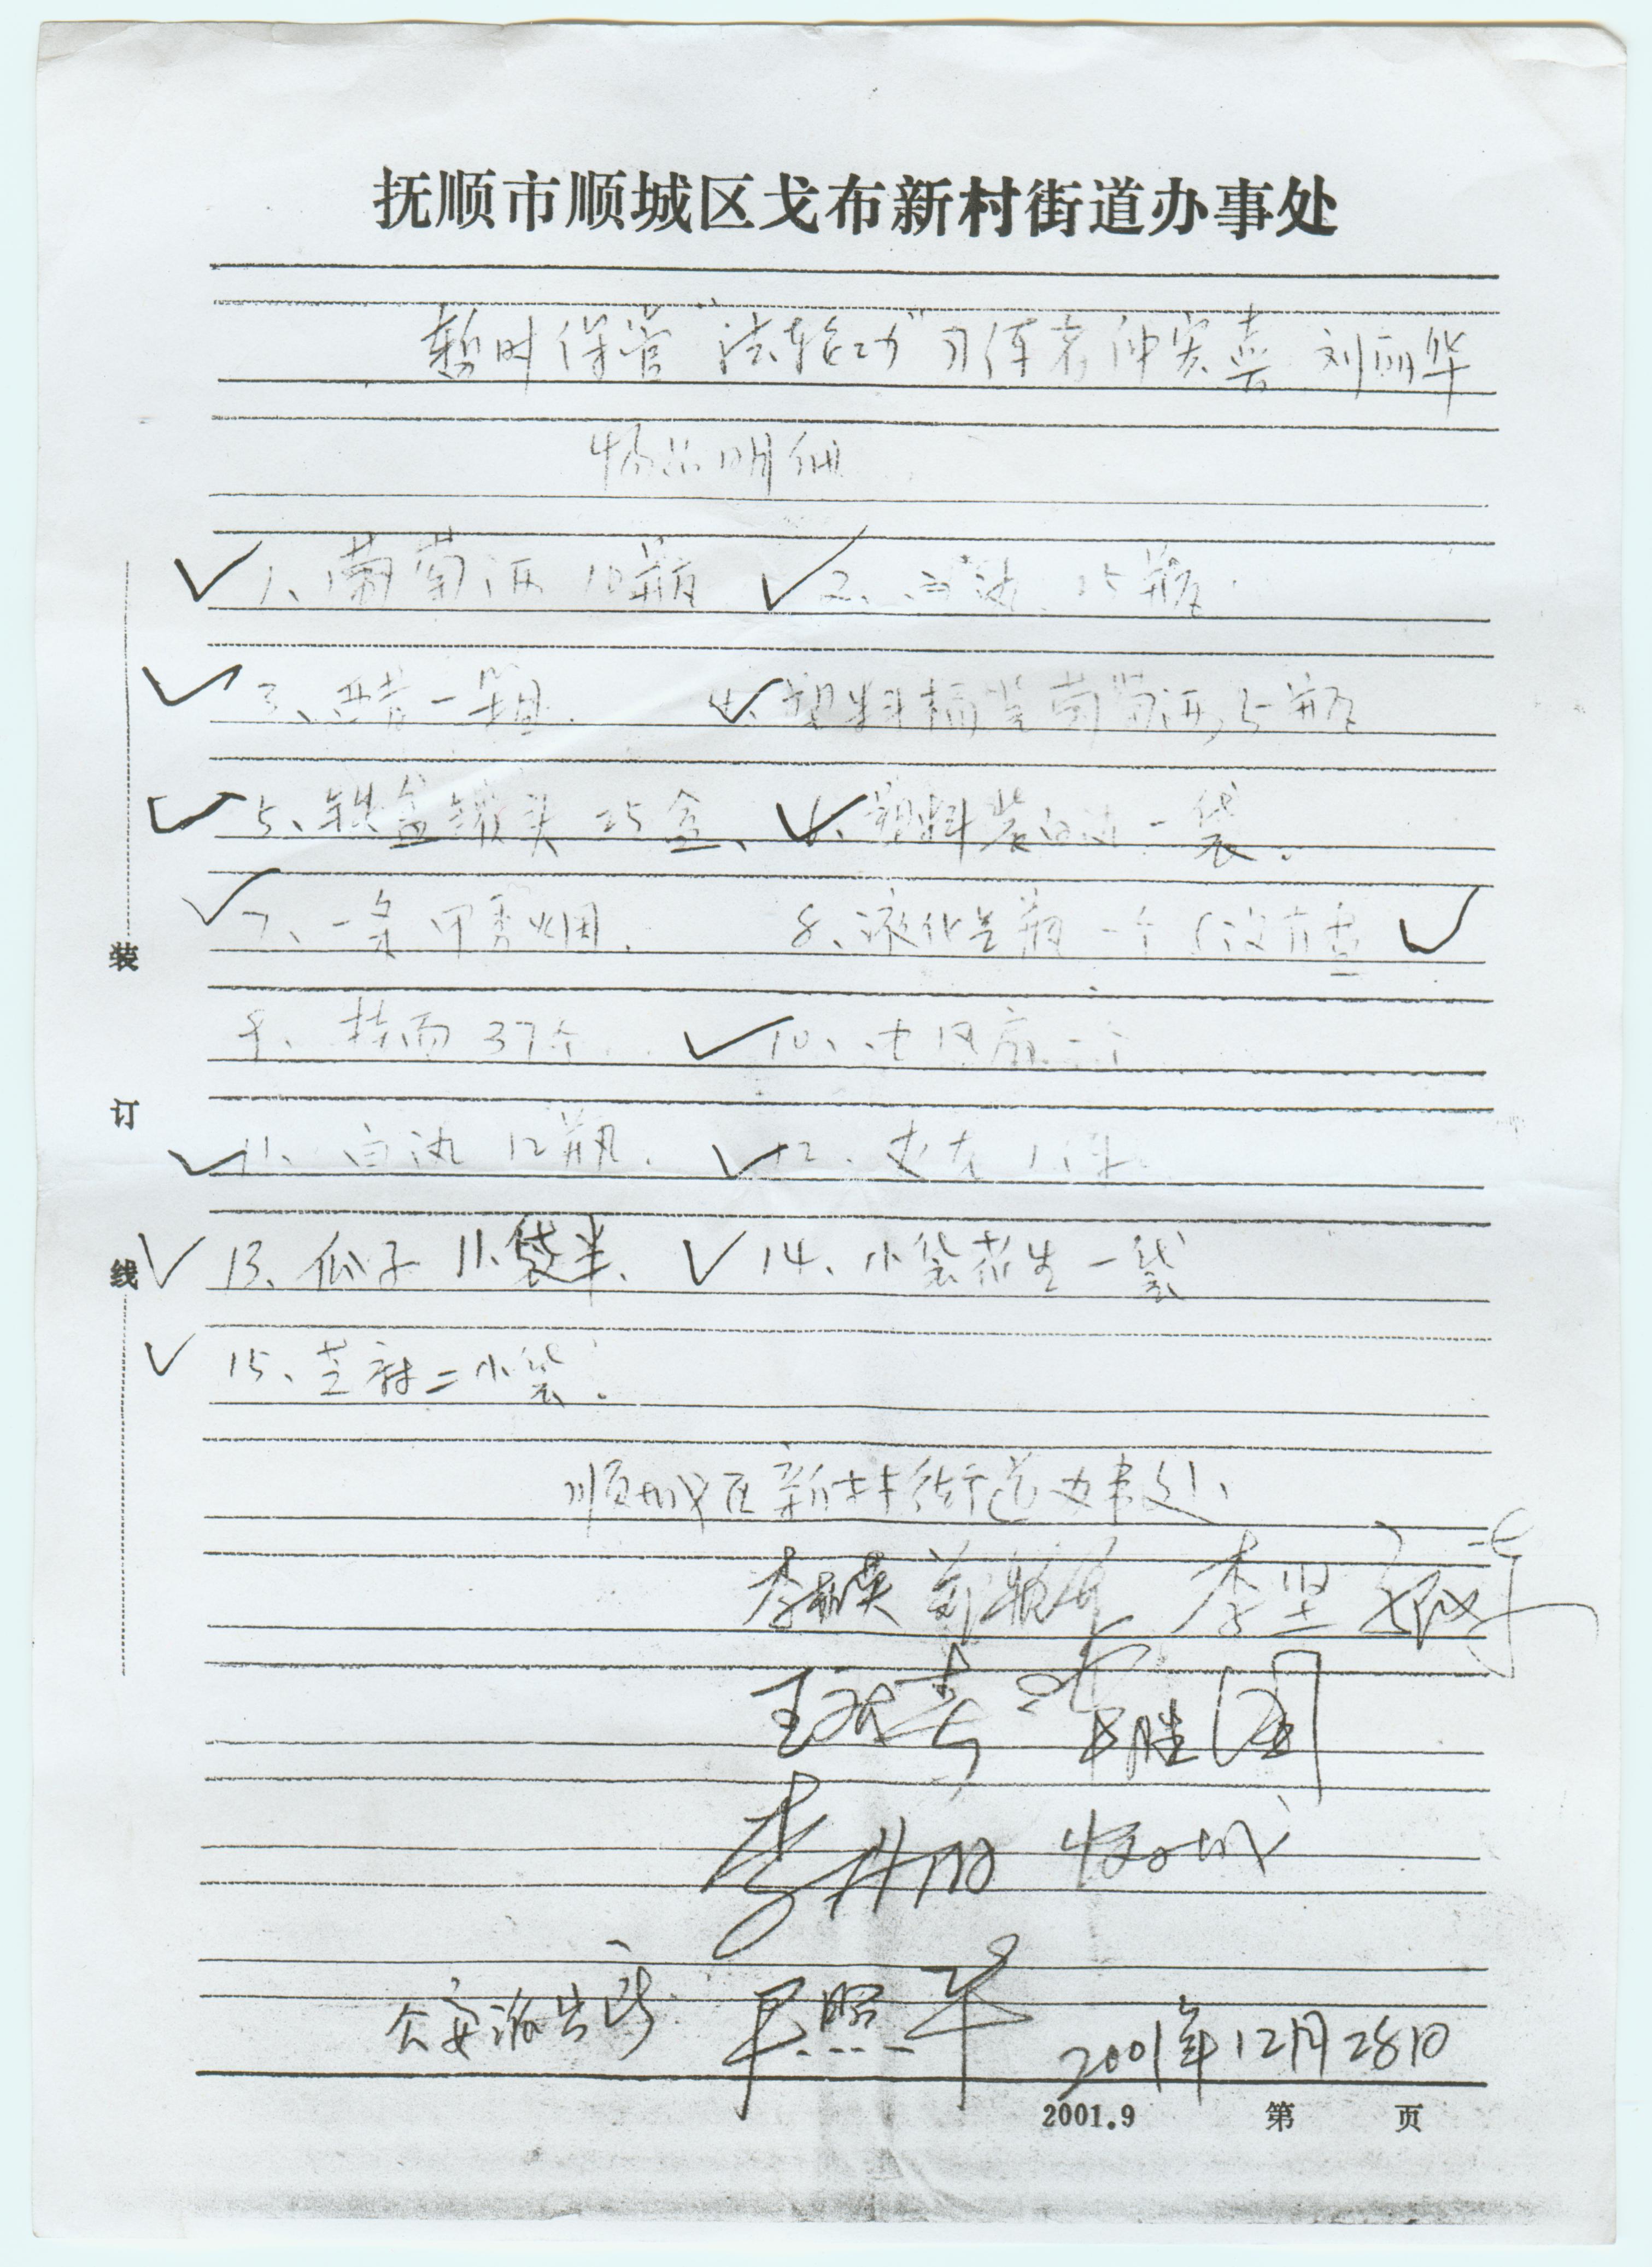 抚顺市顺城区戈布新村街道办事处
暂时保管“法轮功”习练者仲实喜 刘丽华
物品明细
1、葡萄酒10瓶 2、白酒 25瓶
3、醋一箱. 4、塑料桶装葡萄酒5瓶
5、铁盒罐头 25盒、 6、塑料装白酒一袋。
7、一条甲秀烟. 8、液化气瓶一个(没有查
9、挂面37个 10、电风扇一个
11、白酒 12瓶. 12、
13、瓜子 11袋半、 14、小袋花生一袋
15、芝麻二小袋。
顺城区新村街道办事处、
李 李坚
王 胜国
李
公安派出所 照华 2001年12月28日
2001.9 第 页
装
订
线